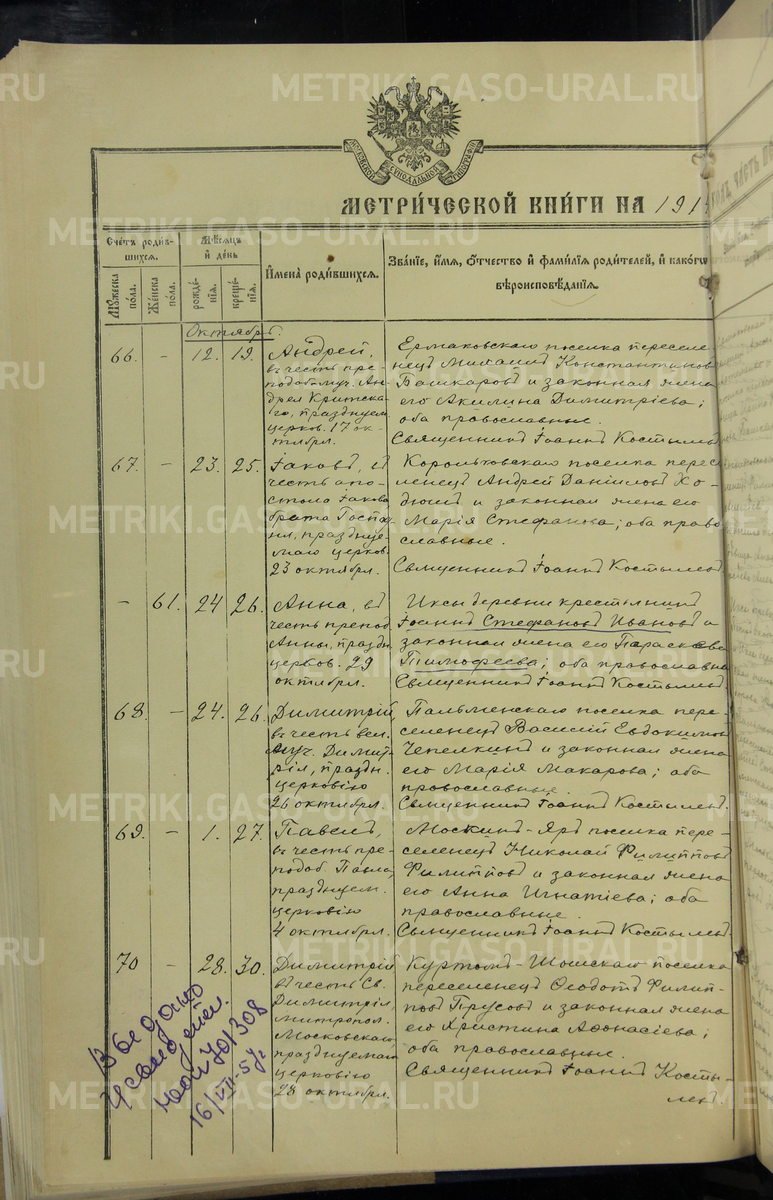 METRIKI.GASO-URAL.RU
МОСКОВСКОЙ СУНОДАЛЬНОЙ ТИПОГРАФІИ
МЕТРИ́ЧЕСКОЙ КНИ́ГИ НА 191
Счетъ роди́вшихся.
Му́жеска по́ла.
Же́нска по́ла.
Мѣ́сяцъ и҆ де́нь
рожде́нїя.
креще́нїя.
И҆мена̀ роди́вшихся.
Зва́нїе, и҆́мя, ѻ҆́тчество и҆ фами́лїя роди́телей, и҆ како́гѡ вѣроисповѣ́данїя.
Октябрь.
66. – 12. 19.
Андрей,
въ честь пре-
подобомуч. Ан-
дрея Критска-
го, празднуем.
церков. 17 ок-
тября.
Ермаковскаго поселка переселе-
нецъ Михаилъ Константиновъ
Башкаровъ и законная жена
его Акилина Димитріева;
оба православные.
Священникъ Іоаннъ Костылевъ
67. – 23. 25.
Іаковъ, въ
честь апо-
стола Іакова
брата Господ-
ня, праздну-
емаго церков.
23 октября.
поселка пересе
ленецъ Андрей Даніиловъ Хо-
дюшъ и законная жена его
Марія Стефанова; оба право-
славные.
Священникъ Іоаннъ Костылевъ
– 61. 24 26.
Анна, въ
честь препод.
Анны, праздн.
церков. 29
октября.
Иксы деревни крестьянинъ
Іоаннъ Стефановъ Ивановъ и
законная жена его Параскева
Тимофеева; оба православные
Священникъ Іоаннъ Костылевъ.
68. – 24. 26.
Димитрій,
въ честь вел.
муч. Димит-
рія, праздн.
церковію
26 октября.
Пальменскаго поселка пере-
селенецъ Василій Евдокимовъ
Чепелкинъ и законная жена
его Марія Макарова; оба
православные.
Священникъ Іоаннъ Костылевъ.
69. – 1. 27.
Павелъ,
въ честь пре-
подоб. Павла,
празднуем.
церковію
4 октября.
Москинъ-Яръ поселка пере-
селенецъ Николай Филипповъ
Филипповъ и законная жена
его Анна Игнатіева; оба
православные.
Священникъ Іоаннъ Костылев.
70 – 28. 30.
Димитрій
въ честь Св.
Димитрія,
митропол.
Московскаго
празднуемаго
церковію
28 октября.
Шошскаго поселка
переселенецъ Феодотъ Филип-
повъ Трусовъ и законная жена
его Христина Афонасіева;
оба православные.
Священникъ Іоаннъ Косты-
левъ.
Выдано
701308
16/VII-54г